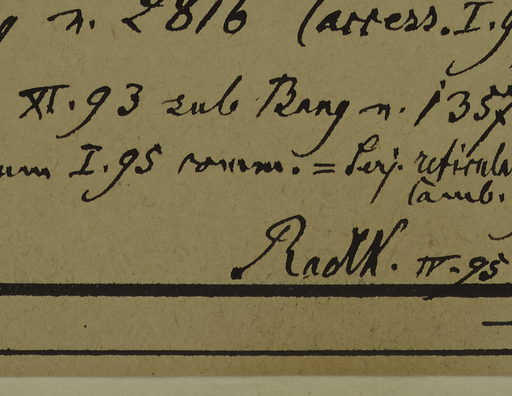 n. 2816 (access. I.9
XI.93 sub Bang n. 1357
um I.95 comm. = Serj. reticula
Camb.
Radlk. IV.95